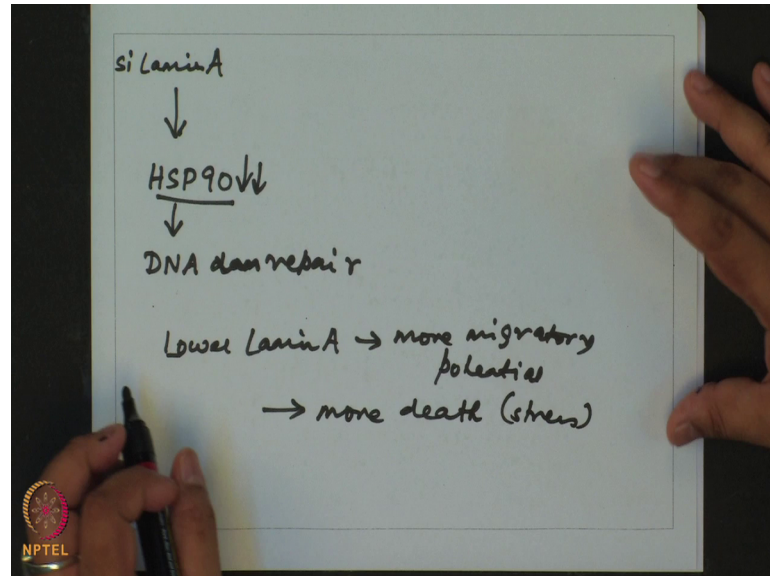 si Lamin A
↓
HSP90 ↓↓
↓
DNA dam repair
Lower Lamin A → more migratory
potential
→ more death (stress)
NPTEL